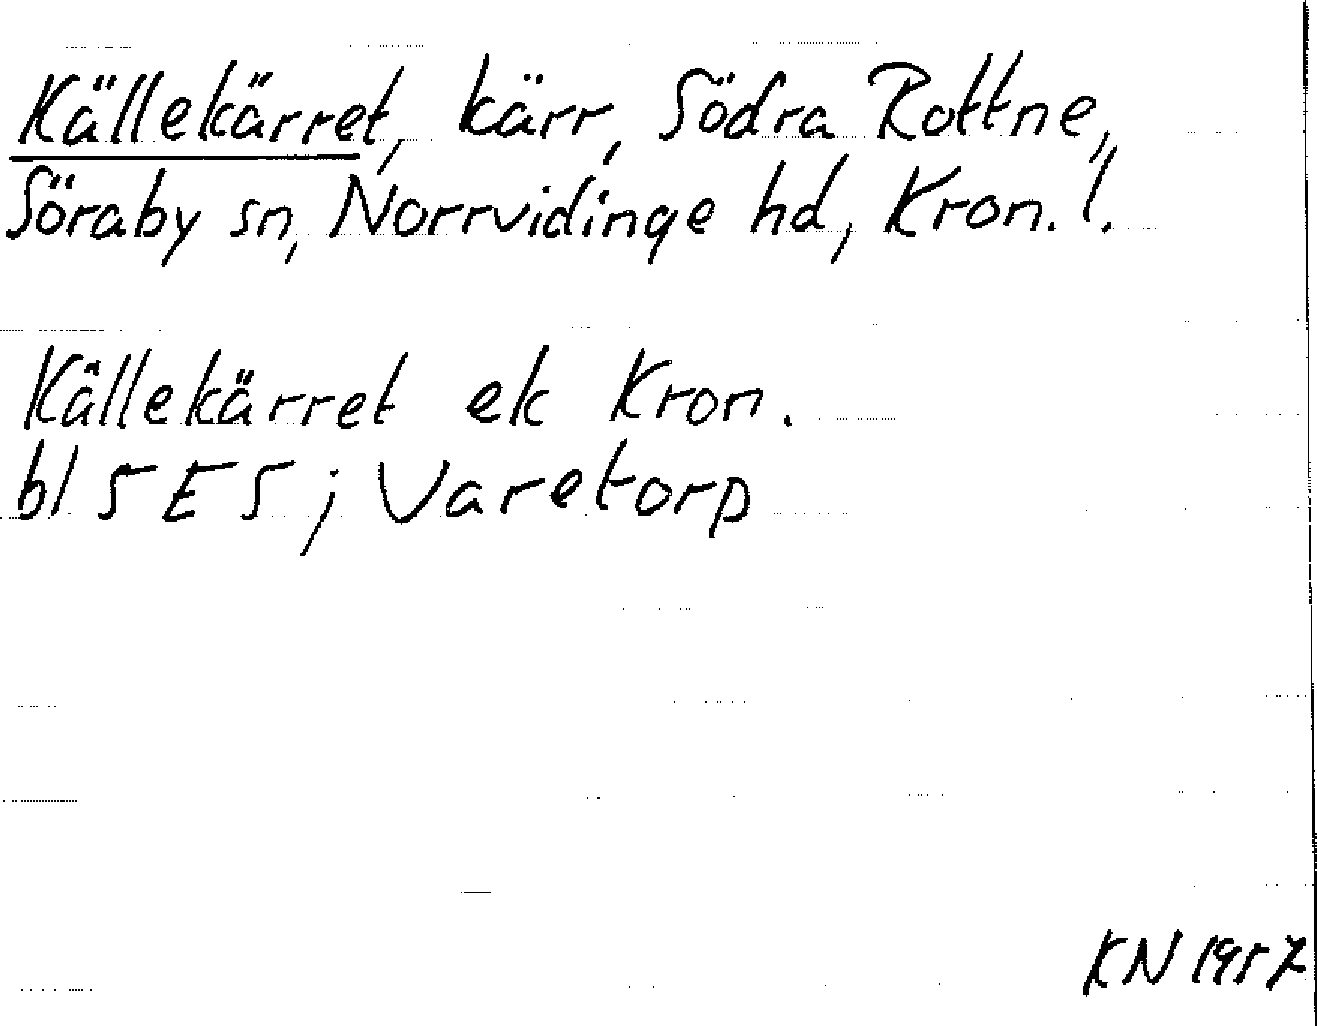 Källekärret, kärr, Södra Rottne,
Söraby sn, Norrvidinge hd, Kron. l.
Källekärret ek Kron.
bl 5 E 5 ; Varetorp
KN 1957